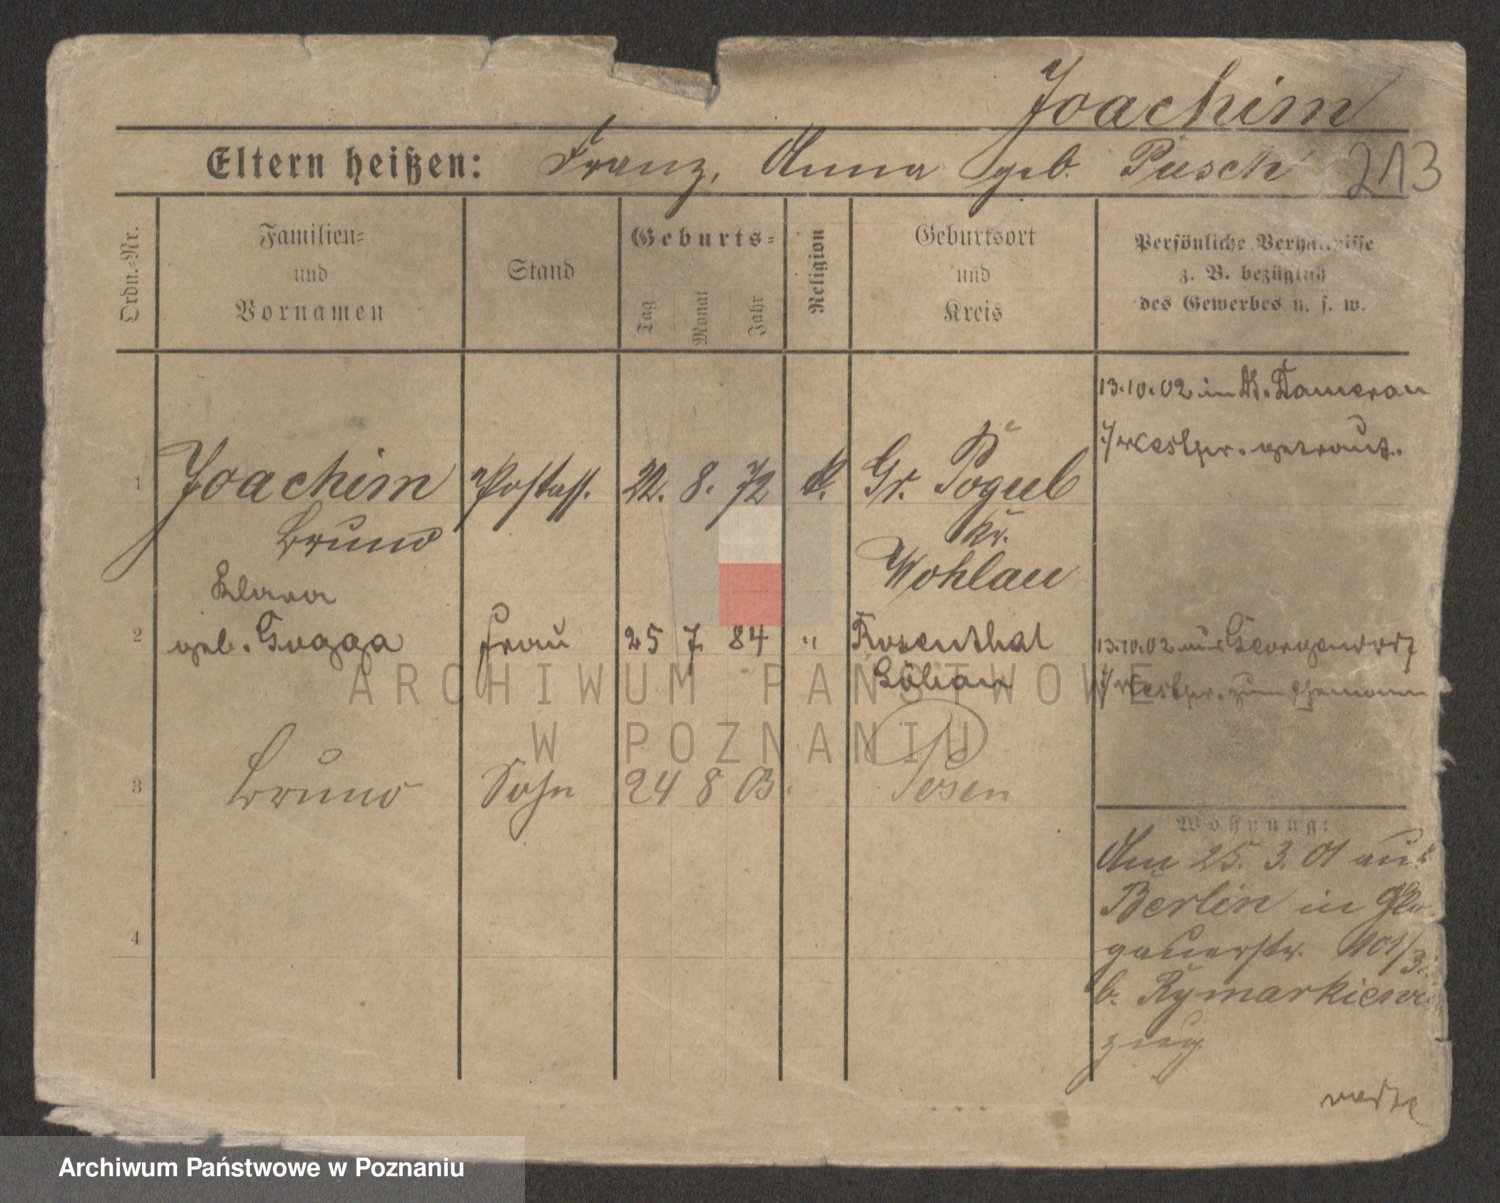 Joachim
Eltern heißen: Franz, Anna geb. Pusch
213
Ordn.-Nr.
Familien-
und
Vornamen
Stand
Geburts-
Tag
Monat
Jahr
Religion
Geburtsort
und
Kreis
Persönliche Verhältnisse
z. B. bezüglich
des Gewerbes u. s. w.
13.10.02 in Dameran
i/Westpr. getraut.
1 Joachim Postass. 22. 8. 72 k. Gr. Pogul
Bruno
Kr.
Wohlau
Klara
2 geb. Frau 25 7 84 " Rosenthal
Löbau
13.10.02 aus Georgendorf
i/Westpr. zum Ehemann
3 Bruno Sohn 24 8 03. Posen
4
Wohnung:
Am 25. 3. 01 aus
Berlin in Glo-
gauerstr. 101/3.
b. Rymarkiewi
zug
ARCHIWUM PAŃSTWOWE
W POZNANIU
Archiwum Państwowe w Poznaniu